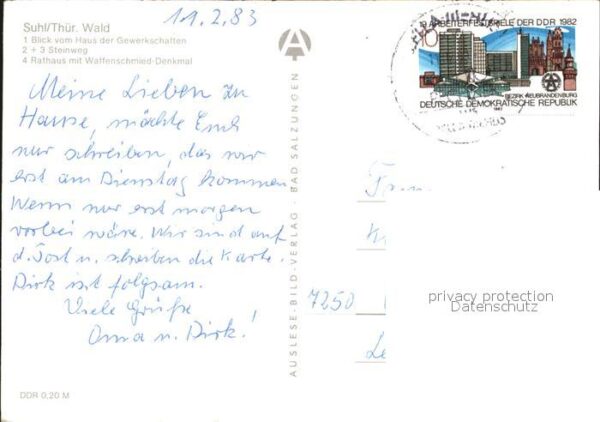 11.2.83
Suhl/Thür. Wald
1 Blick vom Haus der Gewerkschaften
2 + 3 Steinweg
4 Rathaus mit Waffenschmied-Denkmal
Meine Lieben zu
Hause, möchte Euch
nur schreiben, das wir
erst am Dienstag kommen
Wenn nur erst morgen
vorbei wäre. Wir sind auf
d. Post u. schreiben die Karte.
Dirk ist folgsam.
Viele Grüße
Oma u. Dirk!
DDR 0,20 M
AUSLESE-BILD-VERLAG · BAD SALZUNGEN
19. ARBEITERFESTSPIELE DER DDR 1982
10
BEZIRK NEUBRANDENBURG
DEUTSCHE DEMOKRATISCHE REPUBLIK
Fam.
7250
privacy protection
Datenschutz